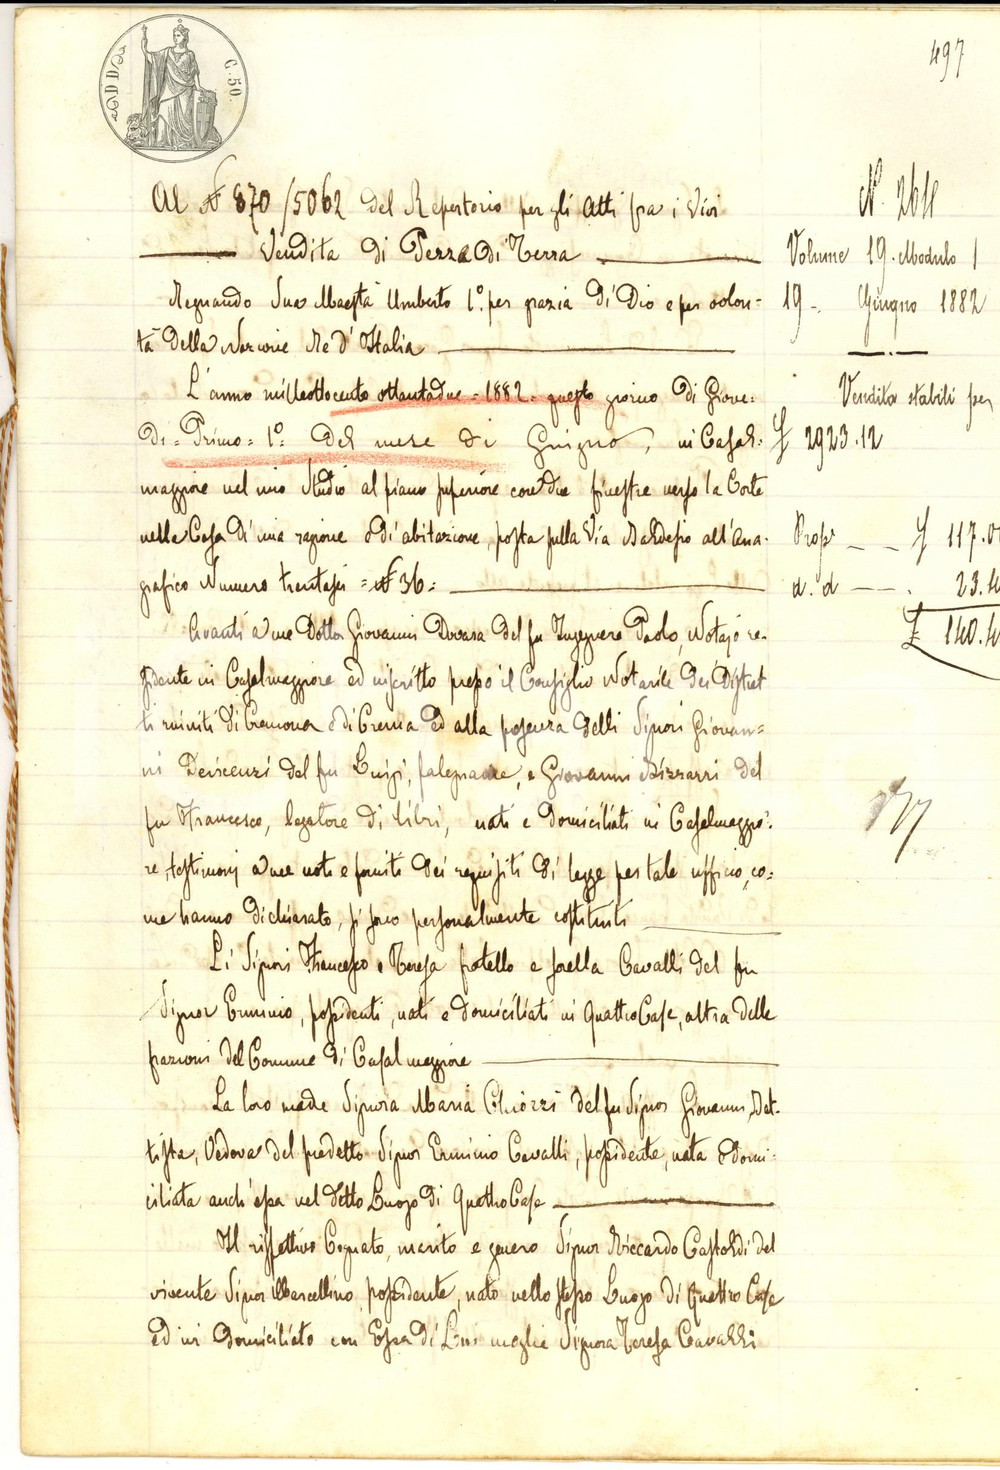 C. 50.
497
Al N° 870/5062 del Repertorio per gli Atti fra i Vivi
Vendita di Pezza di Terra
Regnando Sua Maestà Umberto 1°. per grazia di Dio e per volon=
tà della Nazione Re d'Italia
L'anno milleottocento ottantadue = 1882 = questo giorno di Giove=
di = Primo = 1°: del mese di Giugno, in Casal=
maggiore nel mio Studio al piano superiore con due finestre verso la Corte
nella Casa di mia ragione e di abitazione, posta sulla Via Baldesio all'Ana=
grafico Numero trentasei = N° 36 =
Avanti a me Dottor Giovanni Dovara del fu Ingegnere Paolo, Notajo re=
sidente in Casalmaggiore ed inscritto presso il Consiglio Notarile dei Distret
ti riuniti di Cremona e di Crema ed alla presenza delli Signori Giovan=
ni Deiscenzi del fu Luigi, falegname, e Giovanni Bizzarri del
fu Francesco, legatore di libri, nati e domiciliati in Casalmaggio=
re, testimonj a me noti e forniti dei requisiti di legge per tale ufficio, co=
me hanno dichiarato, si sono personalmente costituiti
Li Signori Francesco e Teresa fratello e sorella Cavalli del fu
Signor Erminio, possidenti, nati e domiciliati in Quattro Case, altra delle
frazioni del Comune di Casalmaggiore
La loro madre Signora Maria Chiozzi del fu Signor Giovanni Bat=
tista, Vedova del predetto Signor Erminio Cavalli, possidente, nata e domi=
ciliata anch'essa nel detto Luogo di Quattro Case
Il rispettivo Cognato, marito e genero Signor Riccardo Castoldi del
vivente Signor Marcellino, possidente, nato nello stesso Luogo di Quattro Case
ed ivi domiciliato con Essa di Lui moglie Signora Teresa Cavalli
N. 2611
Volume 19. Modulo 1
19 - Giugno 1882
Vendita stabili per
£ 2923.12
Prop £ 117.0
a. d 23.4
£ 140.4